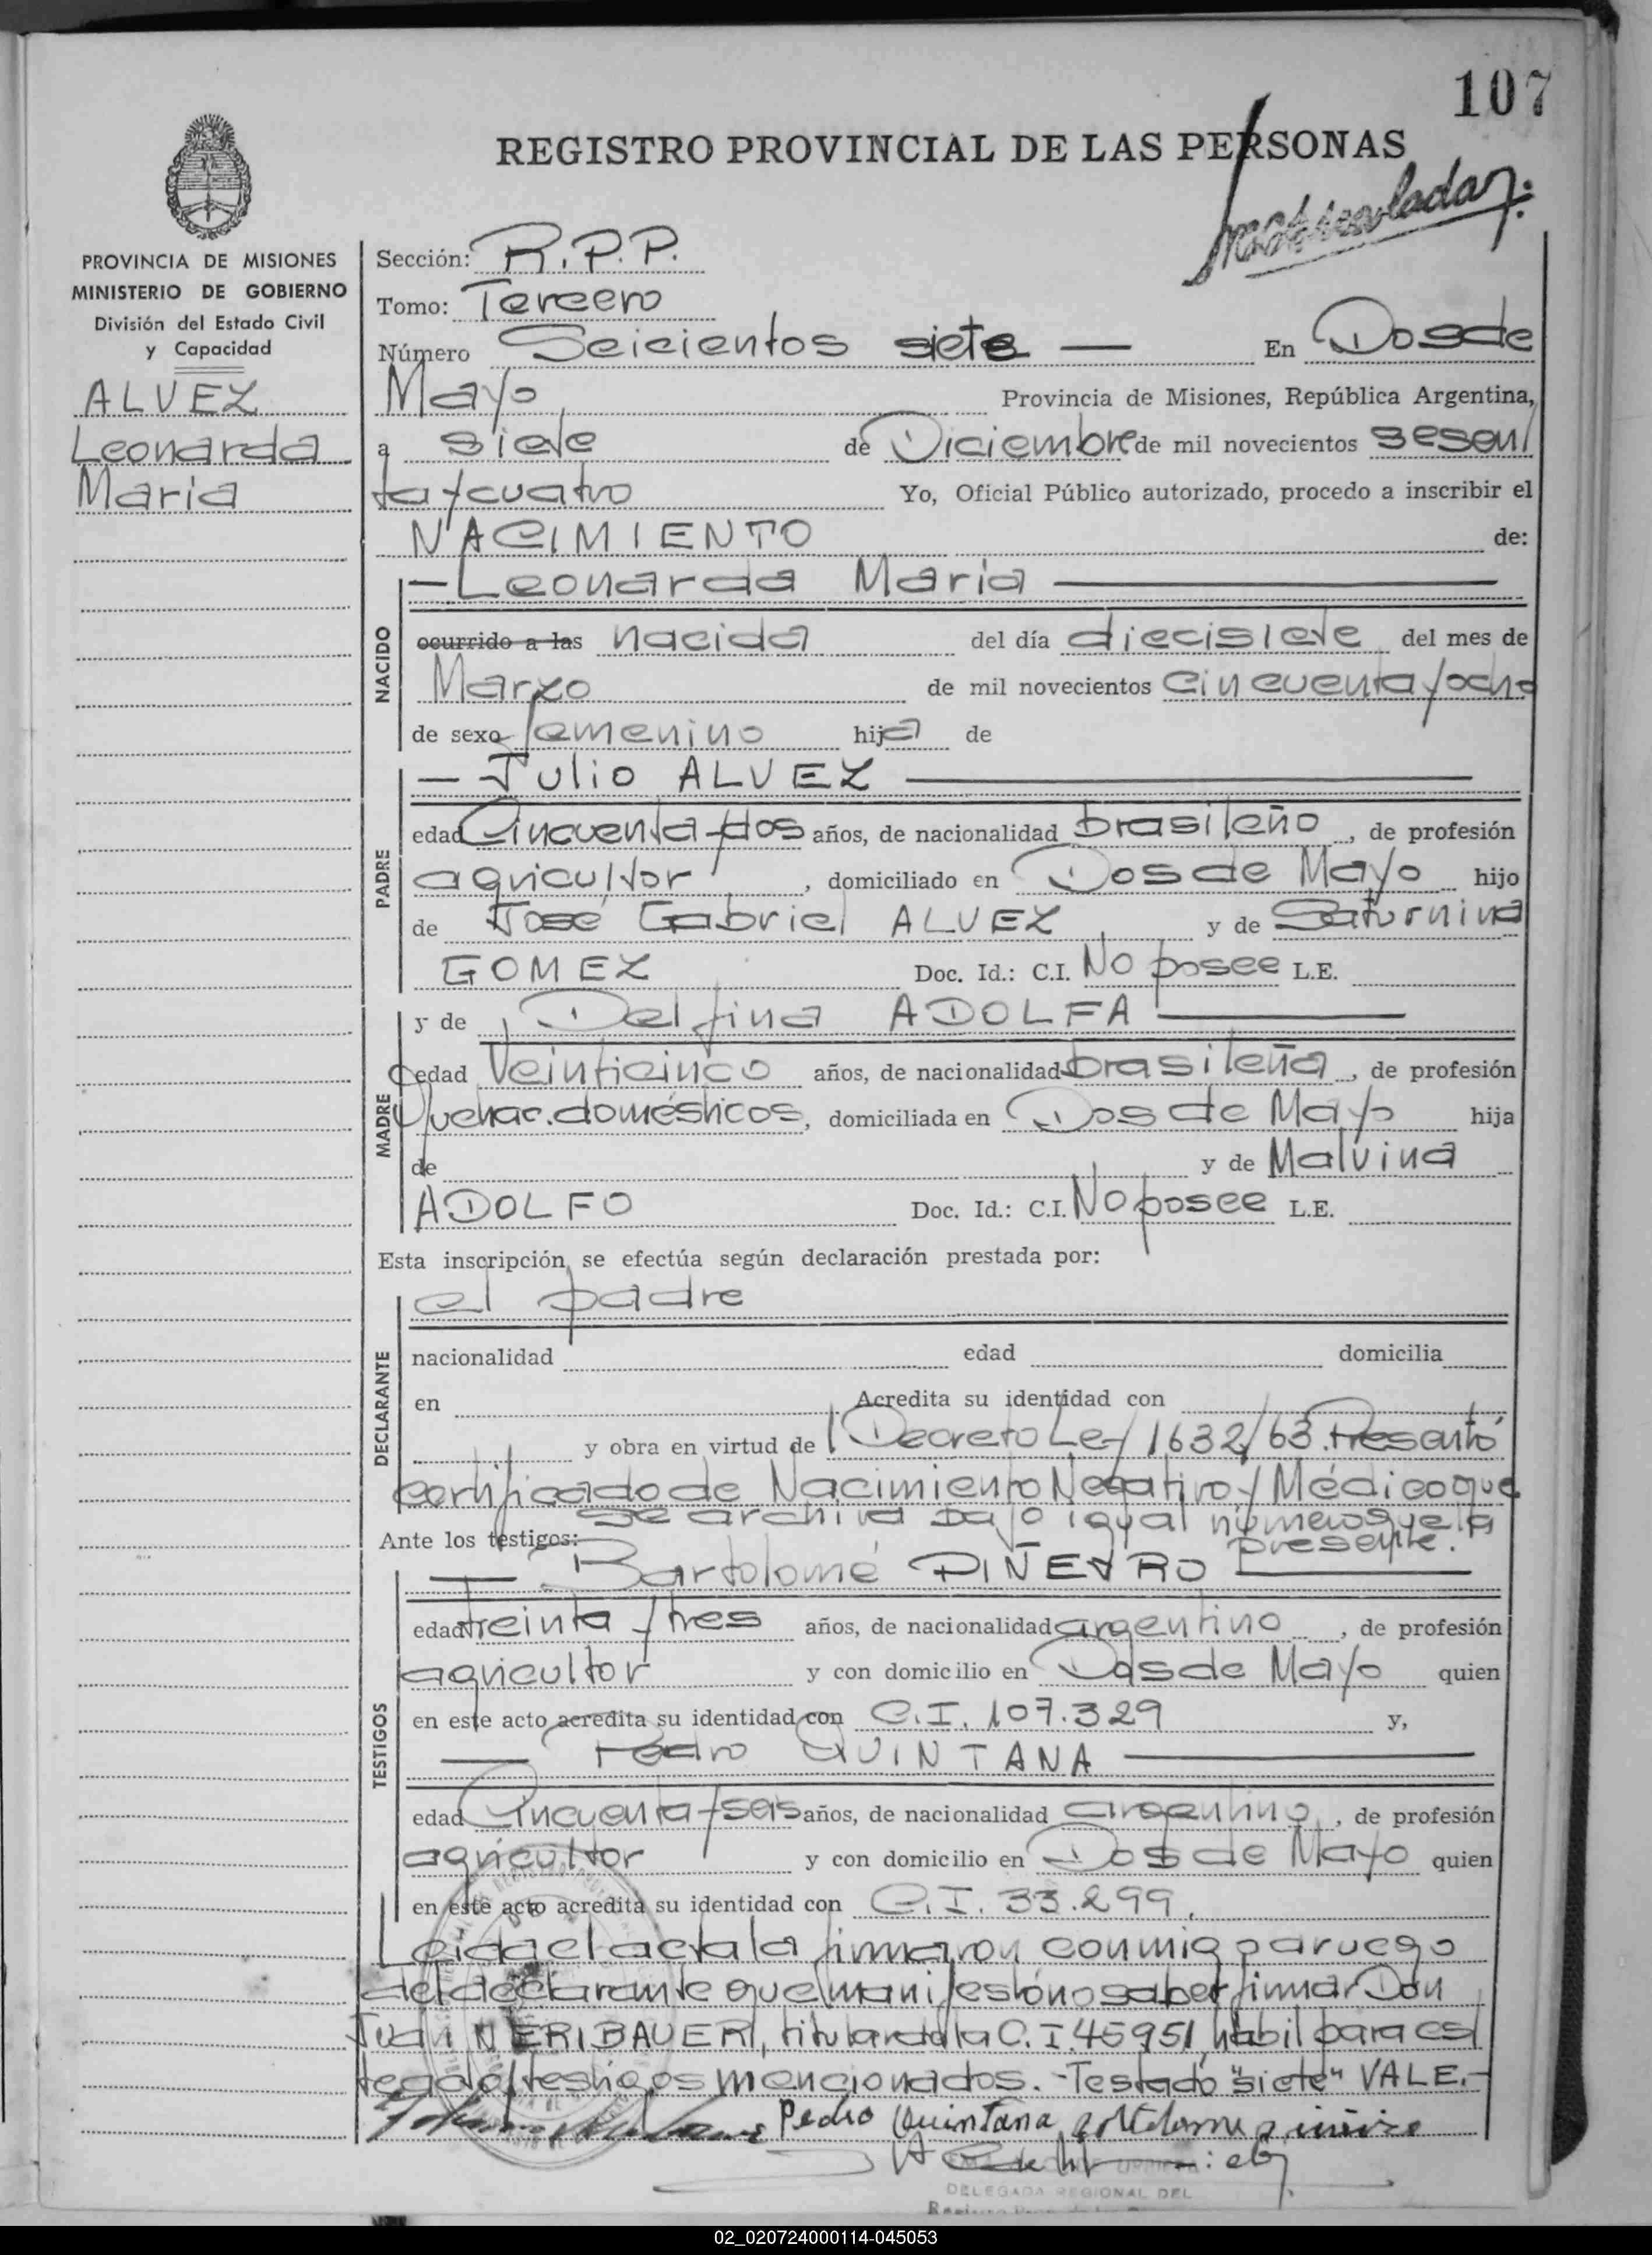 107
REGISTRO PROVINCIAL DE LAS PERSONAS
PROVINCIA DE MISIONES
MINISTERIO DE GOBIERNO
División del Estado Civil
y Capacidad
ALVEZ
Leonarda
Maria
Sección: R.P.P.
Tomo: Tercero
Número Seicientos siete — En Dos de
Mayo Provincia de Misiones, República Argentina,
a siete de Diciembre de mil novecientos sesen/
ta y cuatro Yo, Oficial Público autorizado, procedo a inscribir el
NACIMIENTO de:
— Leonarda Maria —
NACIDO
ocurrido a las nacida del día diecisiete del mes de
Marzo de mil novecientos cincuenta y ocho
de sexo femenino hija de
— Julio ALVEZ —
PADRE
edad Cincuenta y dos años, de nacionalidad brasileño, de profesión
agricultor, domiciliado en Dos de Mayo hijo
de José Gabriel ALVEZ y de Saturnina
GOMEZ Doc. Id.: C.I. No posee L.E.
y de Delfina ADOLFA —
MADRE
edad Veinticinco años, de nacionalidad brasileña, de profesión
Quehac. domésticos, domiciliada en Dos de Mayo hija
de y de Malvina
ADOLFO Doc. Id.: C.I. No posee L.E.
Esta inscripción se efectúa según declaración prestada por:
el padre
DECLARANTE
nacionalidad edad domicilia
en Acredita su identidad con
y obra en virtud de Decreto Ley 1632/63. Presentó
certificado de Nacimiento Negativo y Médico que
se archiva bajo igual número que la
presente.
Ante los testigos:
— Bartolomé PIÑEYRO —
TESTIGOS
edad treinta y tres años, de nacionalidad argentino, de profesión
agricultor y con domicilio en Dos de Mayo quien
en este acto acredita su identidad con C.I. 107.329 y,
— Pedro QUINTANA —
edad Cincuenta y seis años, de nacionalidad argentino, de profesión
agricultor y con domicilio en Dos de Mayo quien
en este acto acredita su identidad con C.I. 33.299,
Leida el acta la firmaron conmigo a ruego
del declarante que manifestó no saber firmar Don
Juan NERIBAUER, titular de la C.I. 45951, hábil para es/
te acto y testigos mencionados. - Testado "siete" VALE.-
Pedro Quintana
DELEGADA REGIONAL DEL
02_020724000114-045053